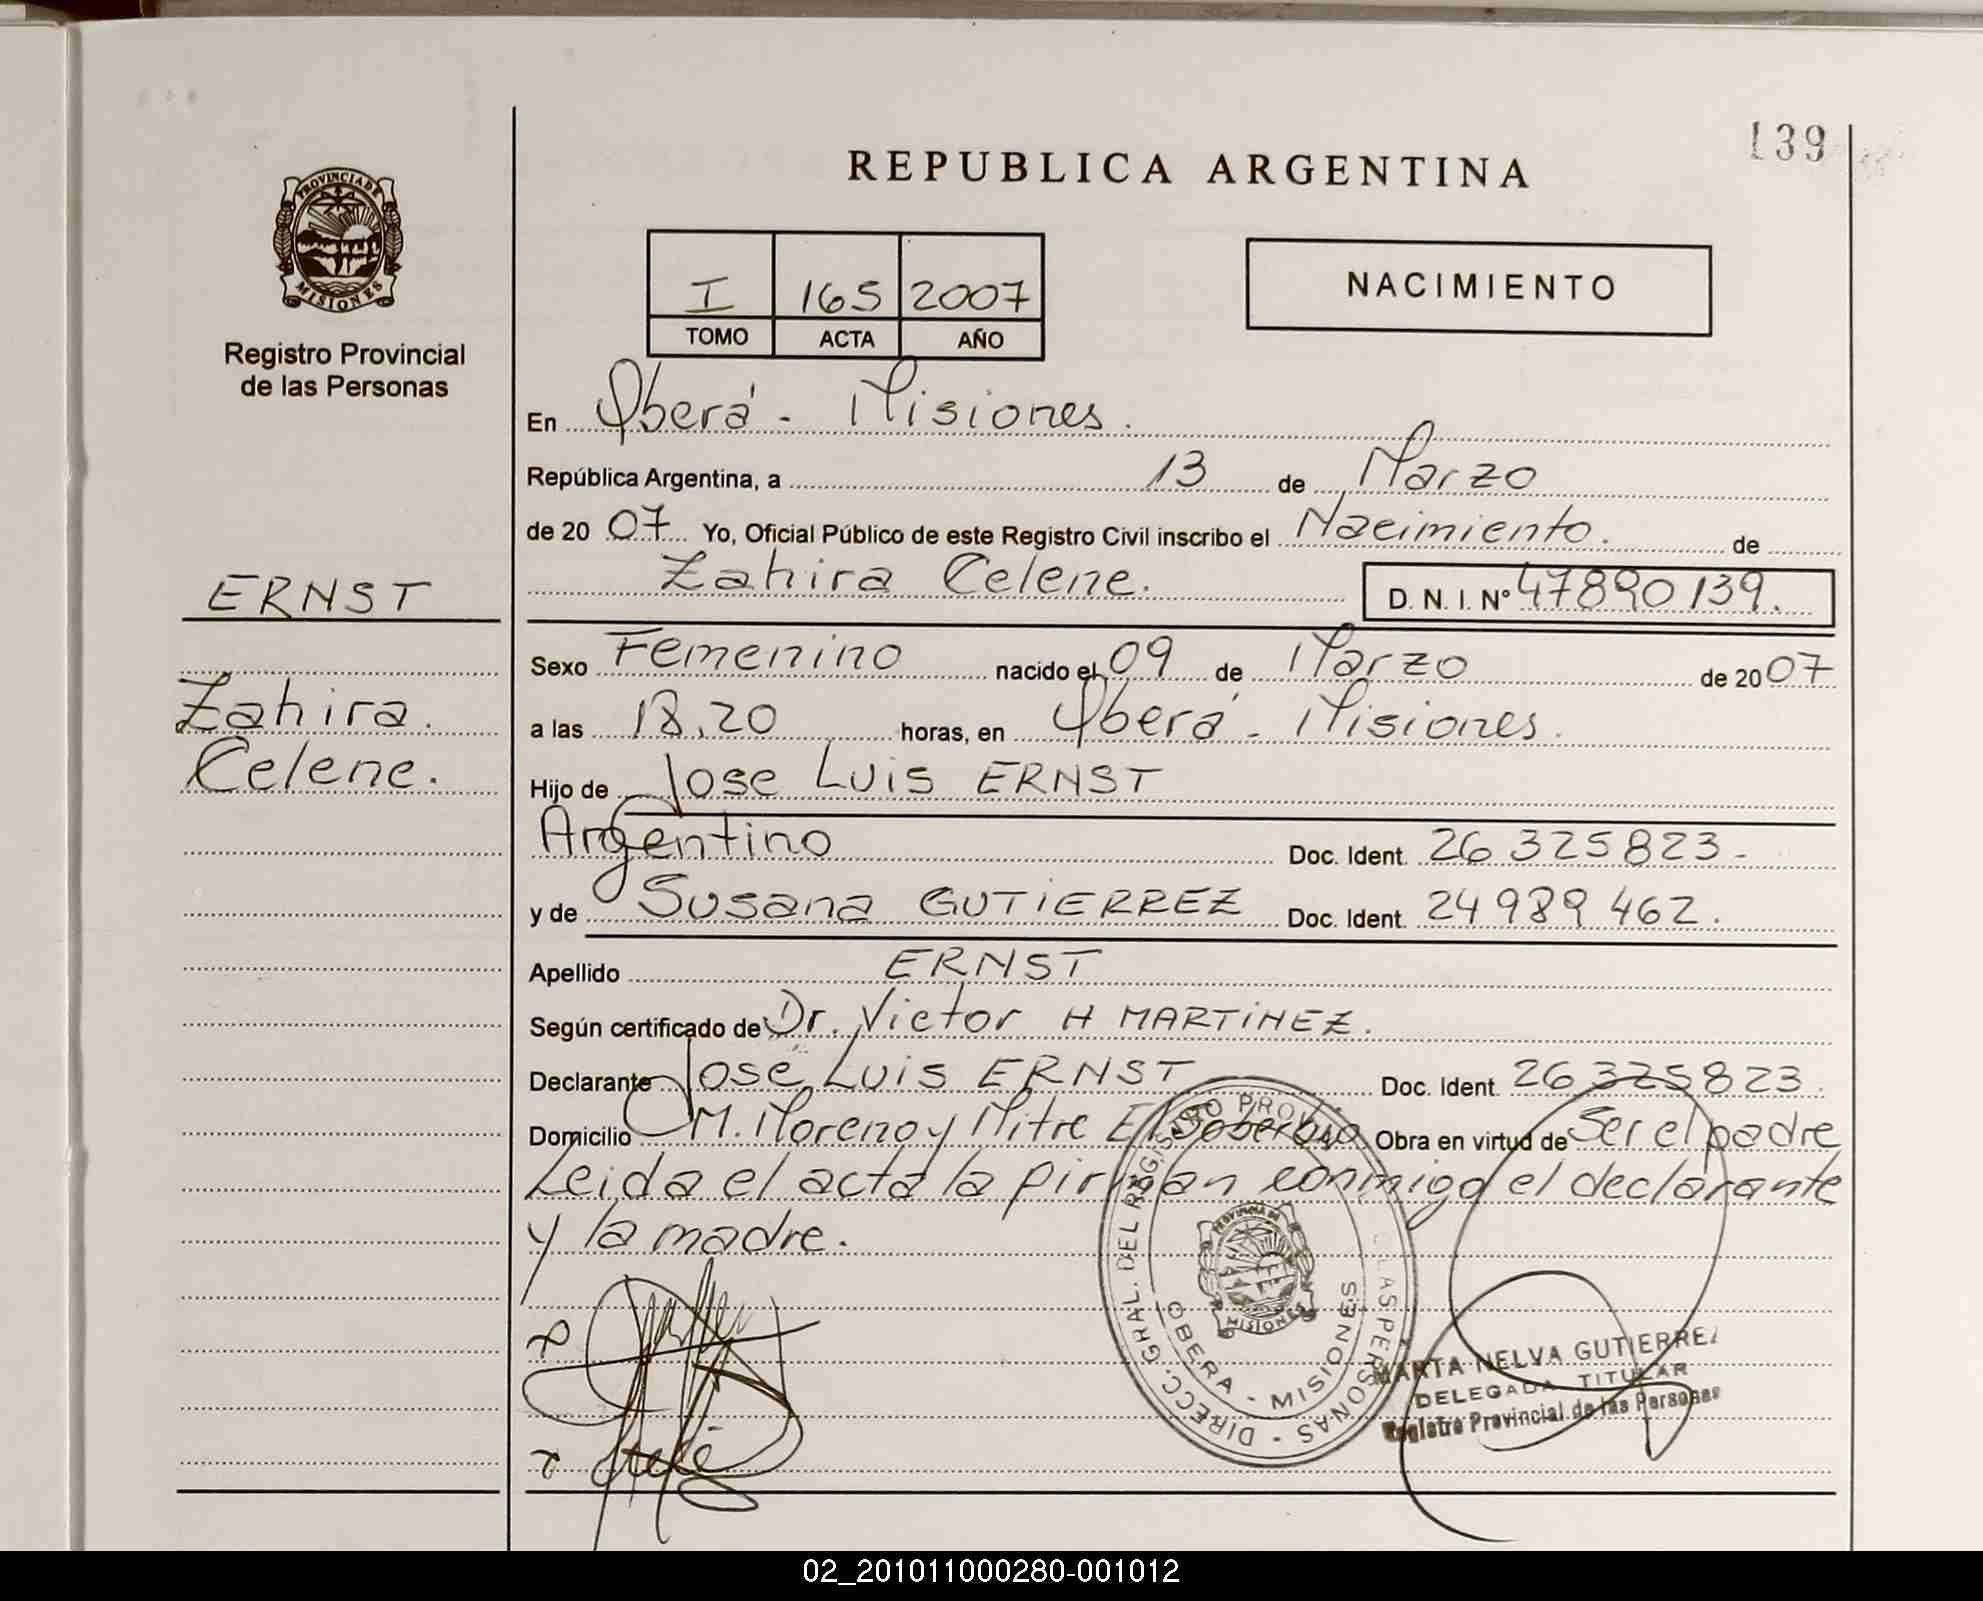 139
REPUBLICA ARGENTINA
PROVINCIA DE
MISIONES
Registro Provincial
de las Personas
I 165 2007
TOMO ACTA AÑO
NACIMIENTO
En Oberá - Misiones.
República Argentina, a 13 de Marzo
de 2007 Yo, Oficial Público de este Registro Civil inscribo el Nacimiento. de
Zahira Celene. D. N. I. Nº 47890139.
ERNST
Zahira
Celene.
Sexo Femenino nacido el 09 de Marzo de 2007
a las 18,20 horas, en Oberá - Misiones.
Hijo de Jose Luis ERNST
Argentino Doc. Ident. 26325823-
y de Susana GUTIERREZ Doc. Ident. 24989462.
Apellido ERNST
Según certificado de Dr. Victor H MARTINEZ.
Declarante José Luis ERNST Doc. Ident. 26325823.
Domicilio M. Moreno y Mitre El Soberbio Obra en virtud de Ser el padre
Leida el acta la firman conmigo el declarante
y la madre.
DIRECC. GRAL. DEL REGISTRO PROV. DE LAS PERSONAS -
PROVINCIA DE
MISIONES
OBERA - MISIONES
MARTA NELVA GUTIERREZ
DELEGADA TITULAR
Registro Provincial de las Personas
02_201011000280-001012